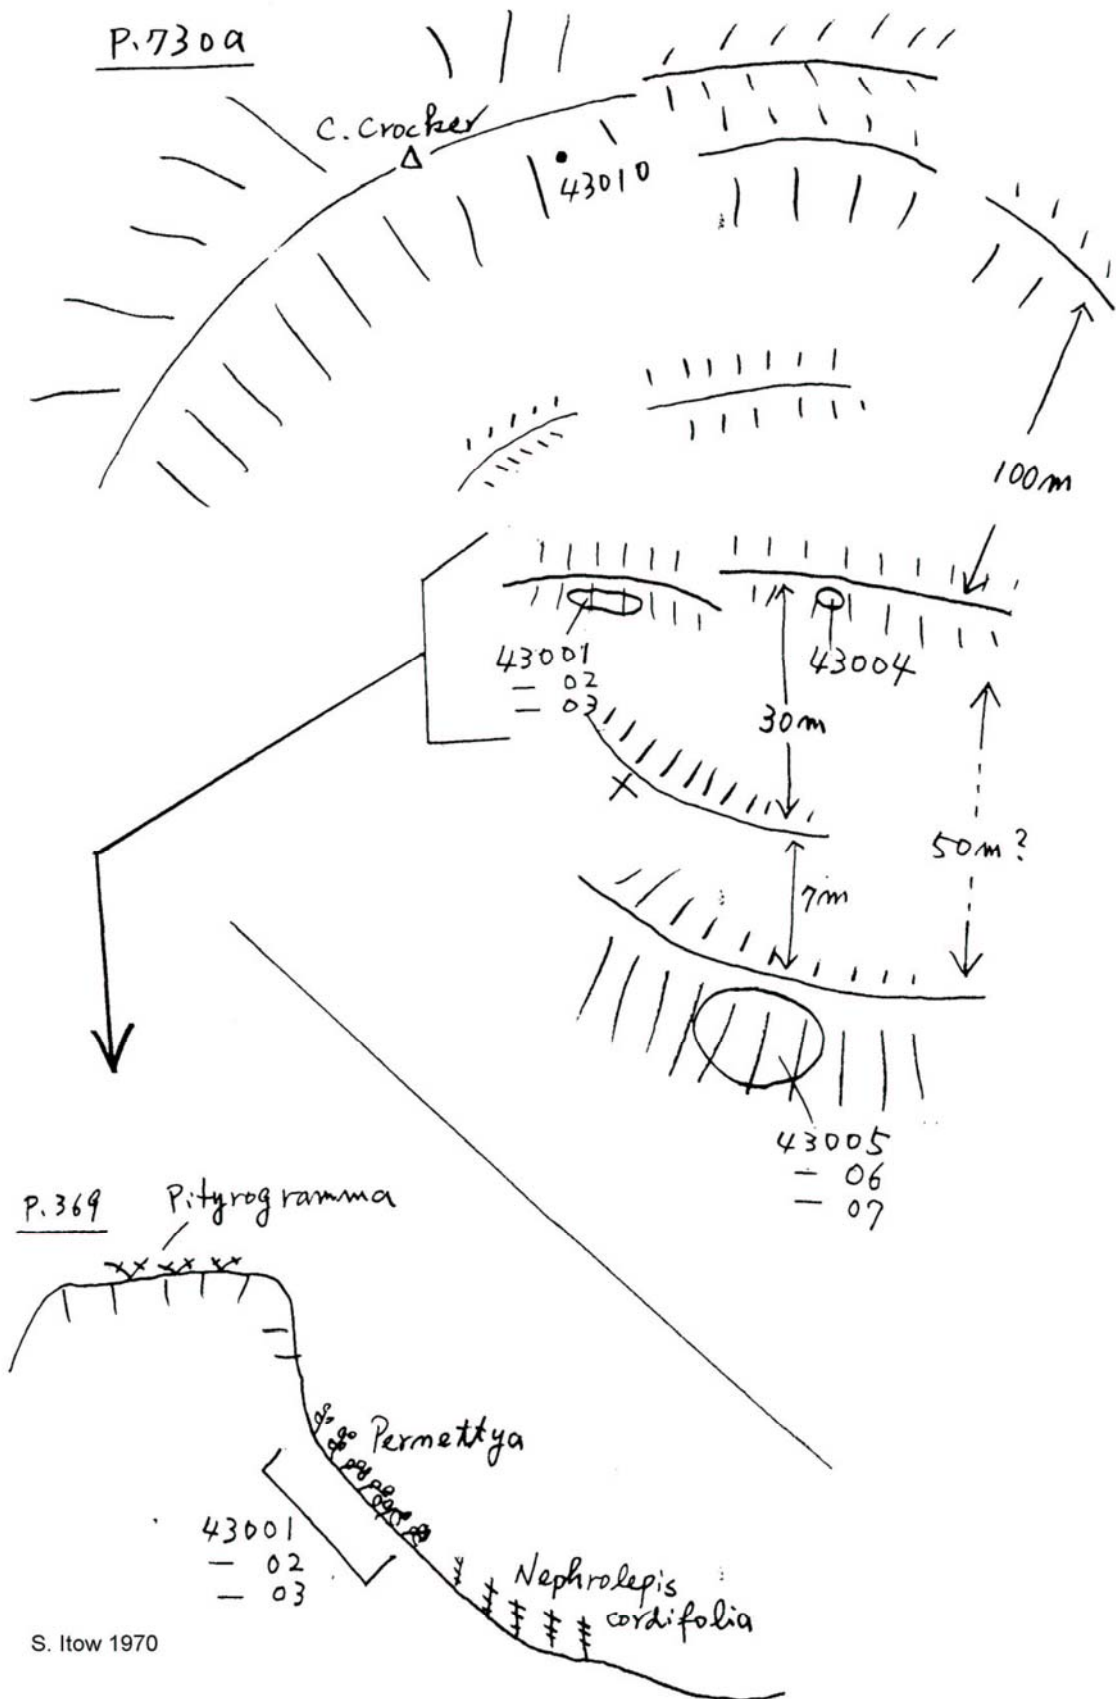 P.730a
C. Crocker
43010
100m
43001
— 02
— 03
43004
30m
50m?
7m
43005
— 06
— 07
P.369
Pityrogramma
Pernettya
43001
— 02
— 03
Nephrolepis
cordifolia
S. Itow 1970